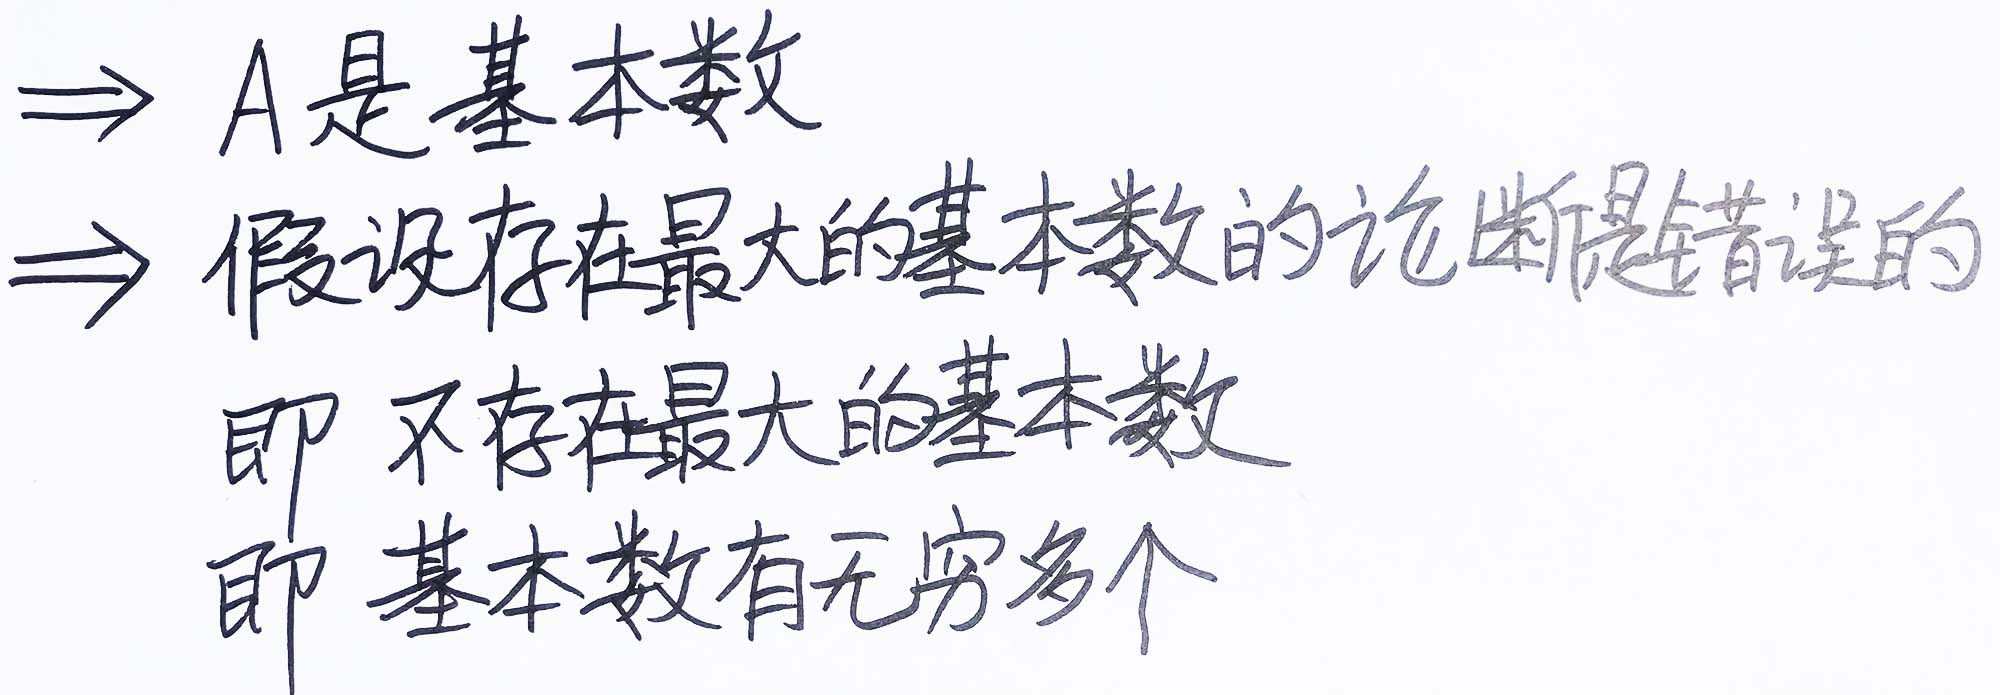 ⇒ A是基本数
⇒ 假设存在最大的基本数的论断是错误的
即 不存在最大的基本数
即 基本数有无穷多个